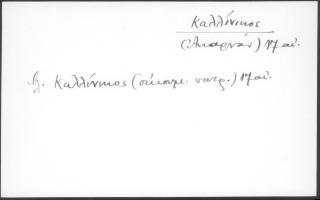 Καλλίνικος
(Ἀκαρνάν) 17 αἰ.
βλ. Καλλίνικος (οἰκουμ. πατρ.) 17 αἰ.